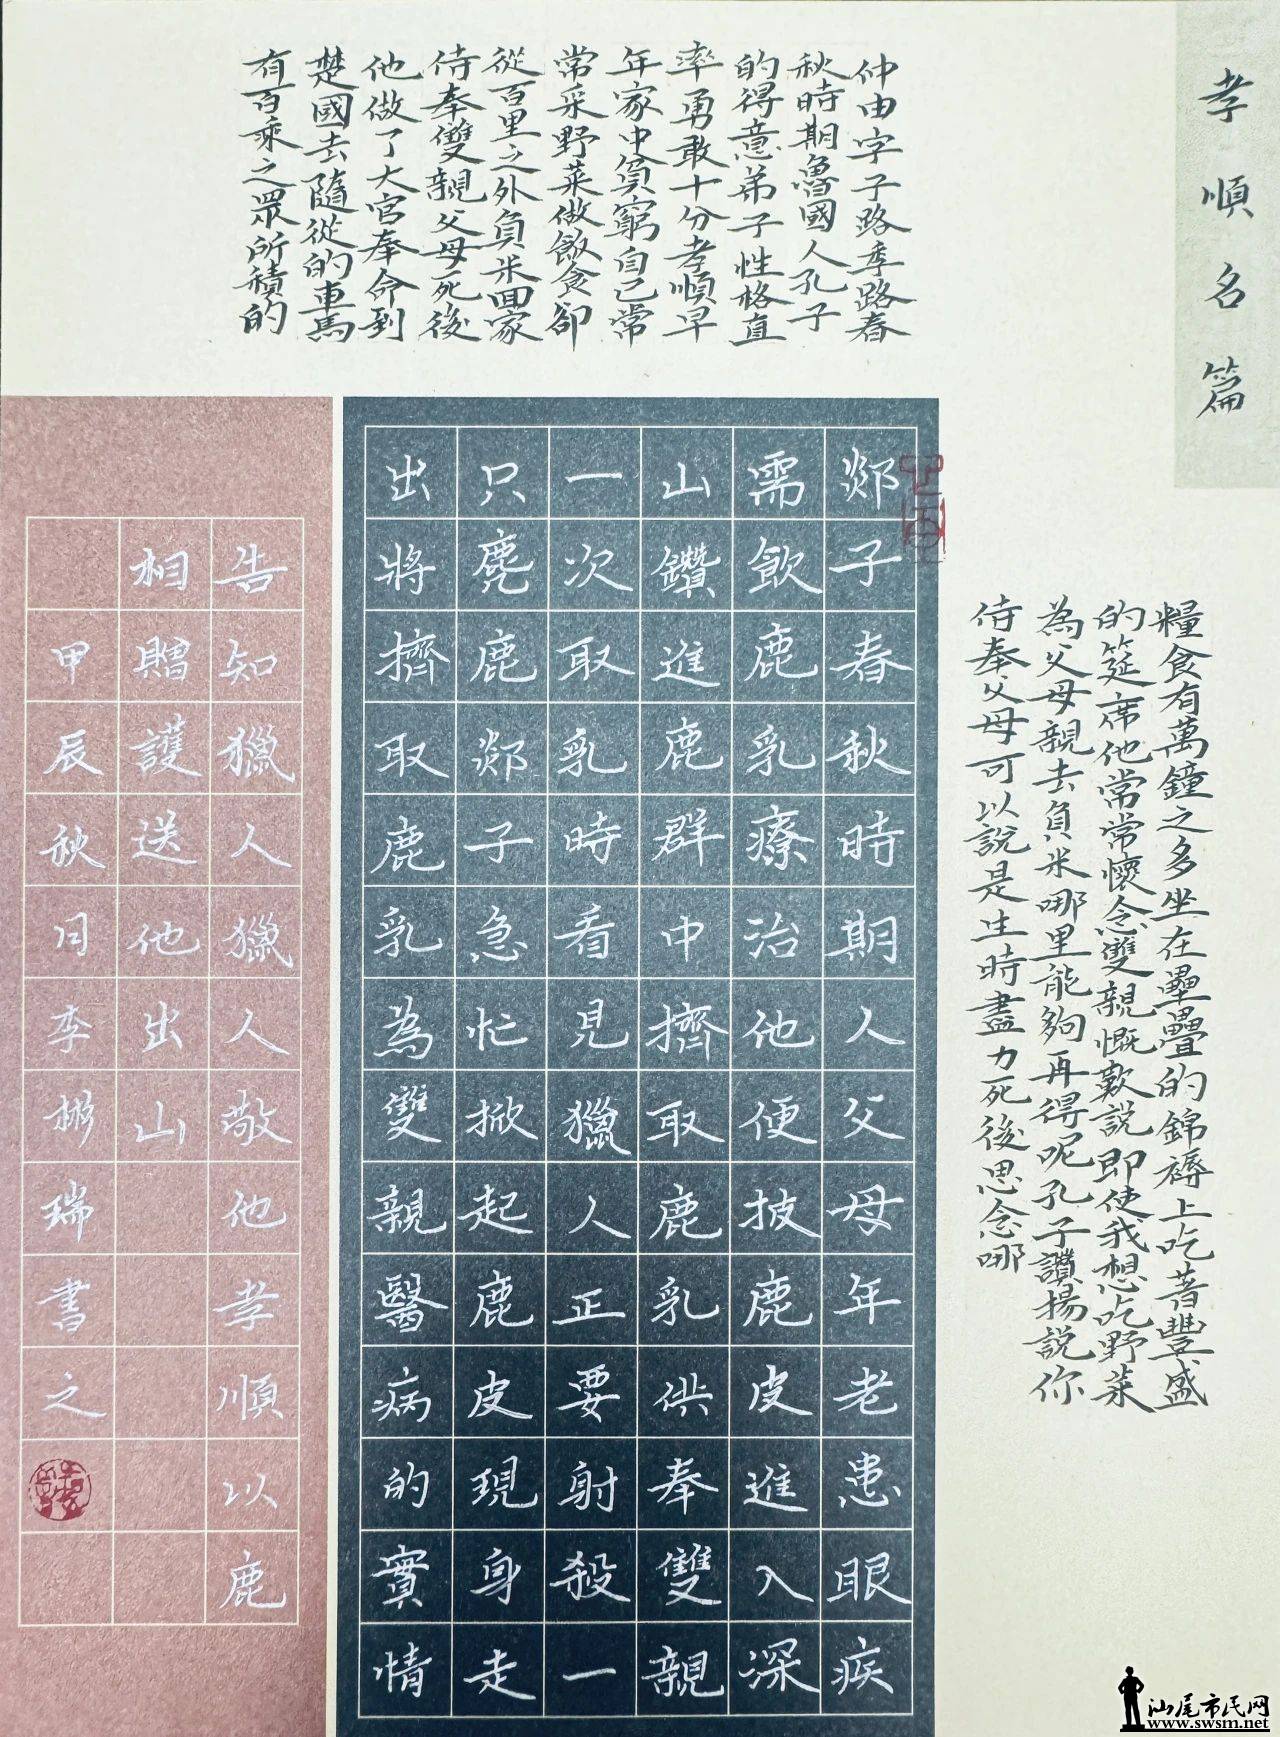 孝順名篇
仲由字子路季路春
秋時期魯國人孔子
的得意弟子性格直
率勇敢十分孝順早
年家中貧窮自己常
常采野菜做飯食卻
從百里之外負米回家
侍奉雙親父母死後
他做了大官奉命到
楚國去隨從的車馬
有百乘之眾所積的
糧食有萬鐘之多坐在壘疊的錦褥上吃著豐盛
的筵席他常常懷念雙親慨歎說即使我想吃野菜
為父母親去負米哪里能夠再得呢孔子讚揚說你
侍奉父母可以說是生時盡力死後思念哪
郯子春秋時期人父母年老患眼疾
需飲鹿乳療治他便披鹿皮進入深
山鑽進鹿群中擠取鹿乳供奉雙親
一次取乳時看見獵人正要射殺一
只麂鹿郯子急忙掀起鹿皮現身走
出將擠取鹿乳為雙親醫病的實情
告知獵人獵人敬他孝順以鹿
相贈護送他出山
甲辰秋月李彬瑞書之
汕尾市民网
www.swsm.net